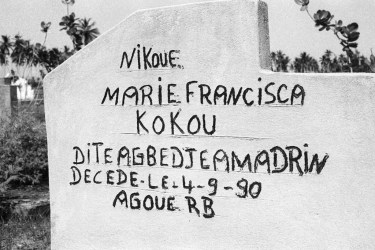 NIKOUE
MARIE FRANCISCA
KOKOU
DITE AGBEDJEAMADRIN
DECEDE-LE-4-9-90
AGOUE RB